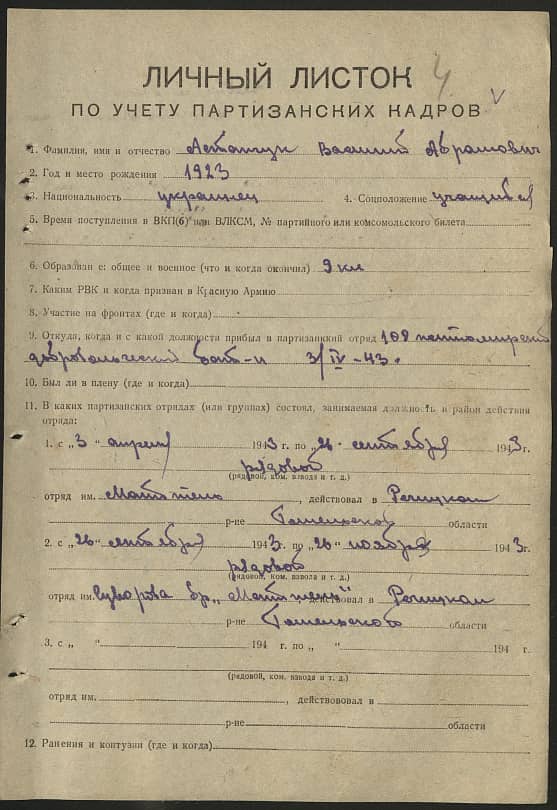 4
ЛИЧНЫЙ ЛИСТОК
ПО УЧЕТУ ПАРТИЗАНСКИХ КАДРОВ V
1. Фамилия, имя и отчество Василий Абрамович
2. Год и место рождения 1923
3. Национальность украинец 4. Соцположение учащийся
5. Время поступления в ВКП(б) или ВЛКСМ, № партийного или комсомольского билета
6. Образование: общее и военное (что и когда окончил) 9 кл
7. Каким РВК и когда призван в Красную Армию
8. Участие на фронтах (где и когда)
9. Откуда, когда и с какой должности прибыл в партизанский отряд 108
добровольческий бат-н 3/IV-43.
10. Был ли в плену (где и когда)
11. В каких партизанских отрядах (или группах) состоял, занимаемая должность и район действия
отряда:
1. с „3“ апреля 1943 г. по „26“ сентября 1943 г.
рядовой
(рядовой, ком. взвода и т. д.)
отряд им. , действовал в Речицком
р-не Гомельской области
2. с „26“ сентября 1943 г. по „26“ ноября 1943 г.
рядовой
(рядовой, ком. взвода и т. д.)
отряд им. Суворова бр. действовал в Речицком
р-не Гомельского области
3. с „ “ 194 г. по „ “ 194 г.
(рядовой, ком. взвода и т. д.)
отряд им. , действовал в
р-не области
12. Ранения и контузии (где и когда)